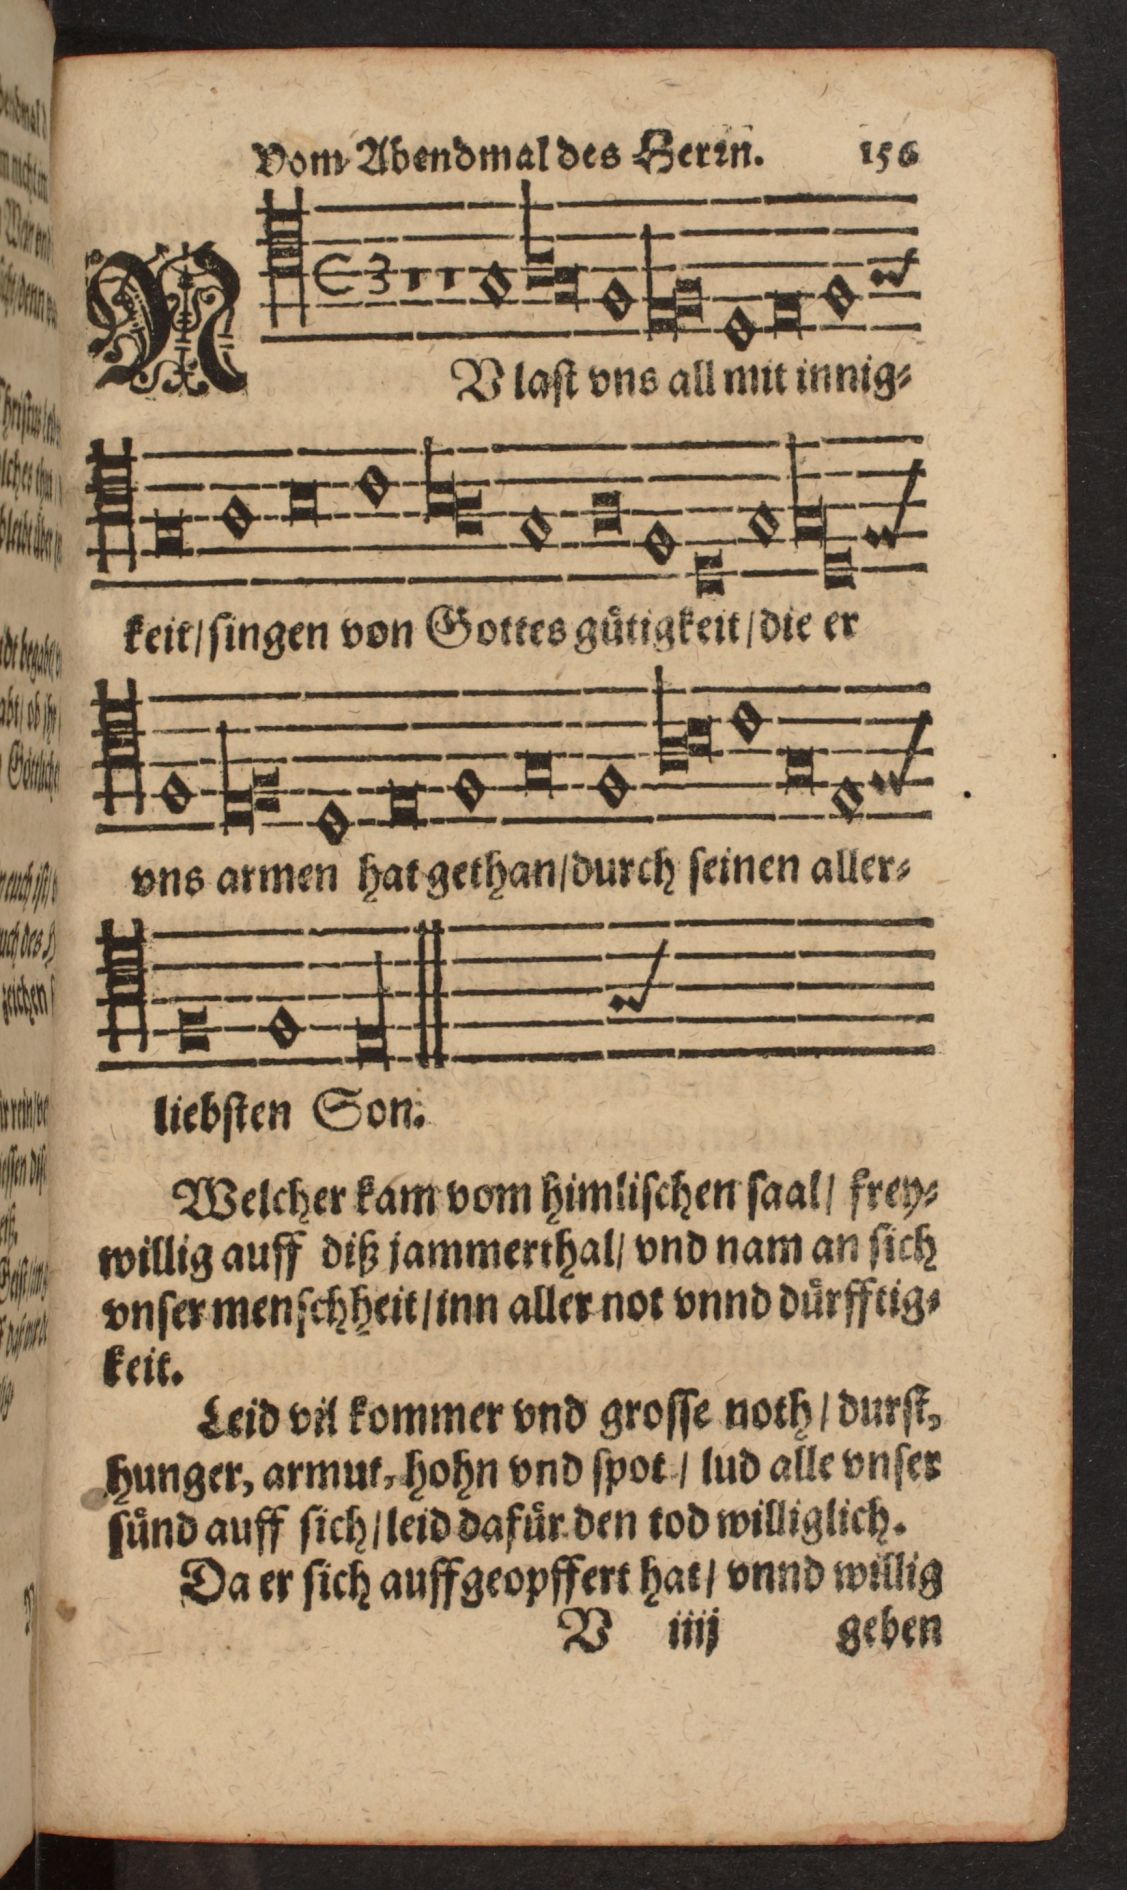 Vom Abendmal des Herrn. 156
NV last vns all mit innig⸗
keit/ singen von Gottes gütigkeit/ die er
vns armen hat gethan/ durch seinen aller⸗
liebsten Son.
Welcher kam vom himlischen saal/ frey⸗
willig auff diß jammerthal/ vnd nam an sich
vnser menschheit/ inn aller not vnnd dürfftig⸗
keit.
Leid vil kommer vnd grosse noth/ durst,
hunger, armut, hohn vnd spot/ lud alle vnser
sünd auff sich/ leid dafür den tod williglich.
Da er sich auffgeopffert hat/ vnnd willig
V iiij geben